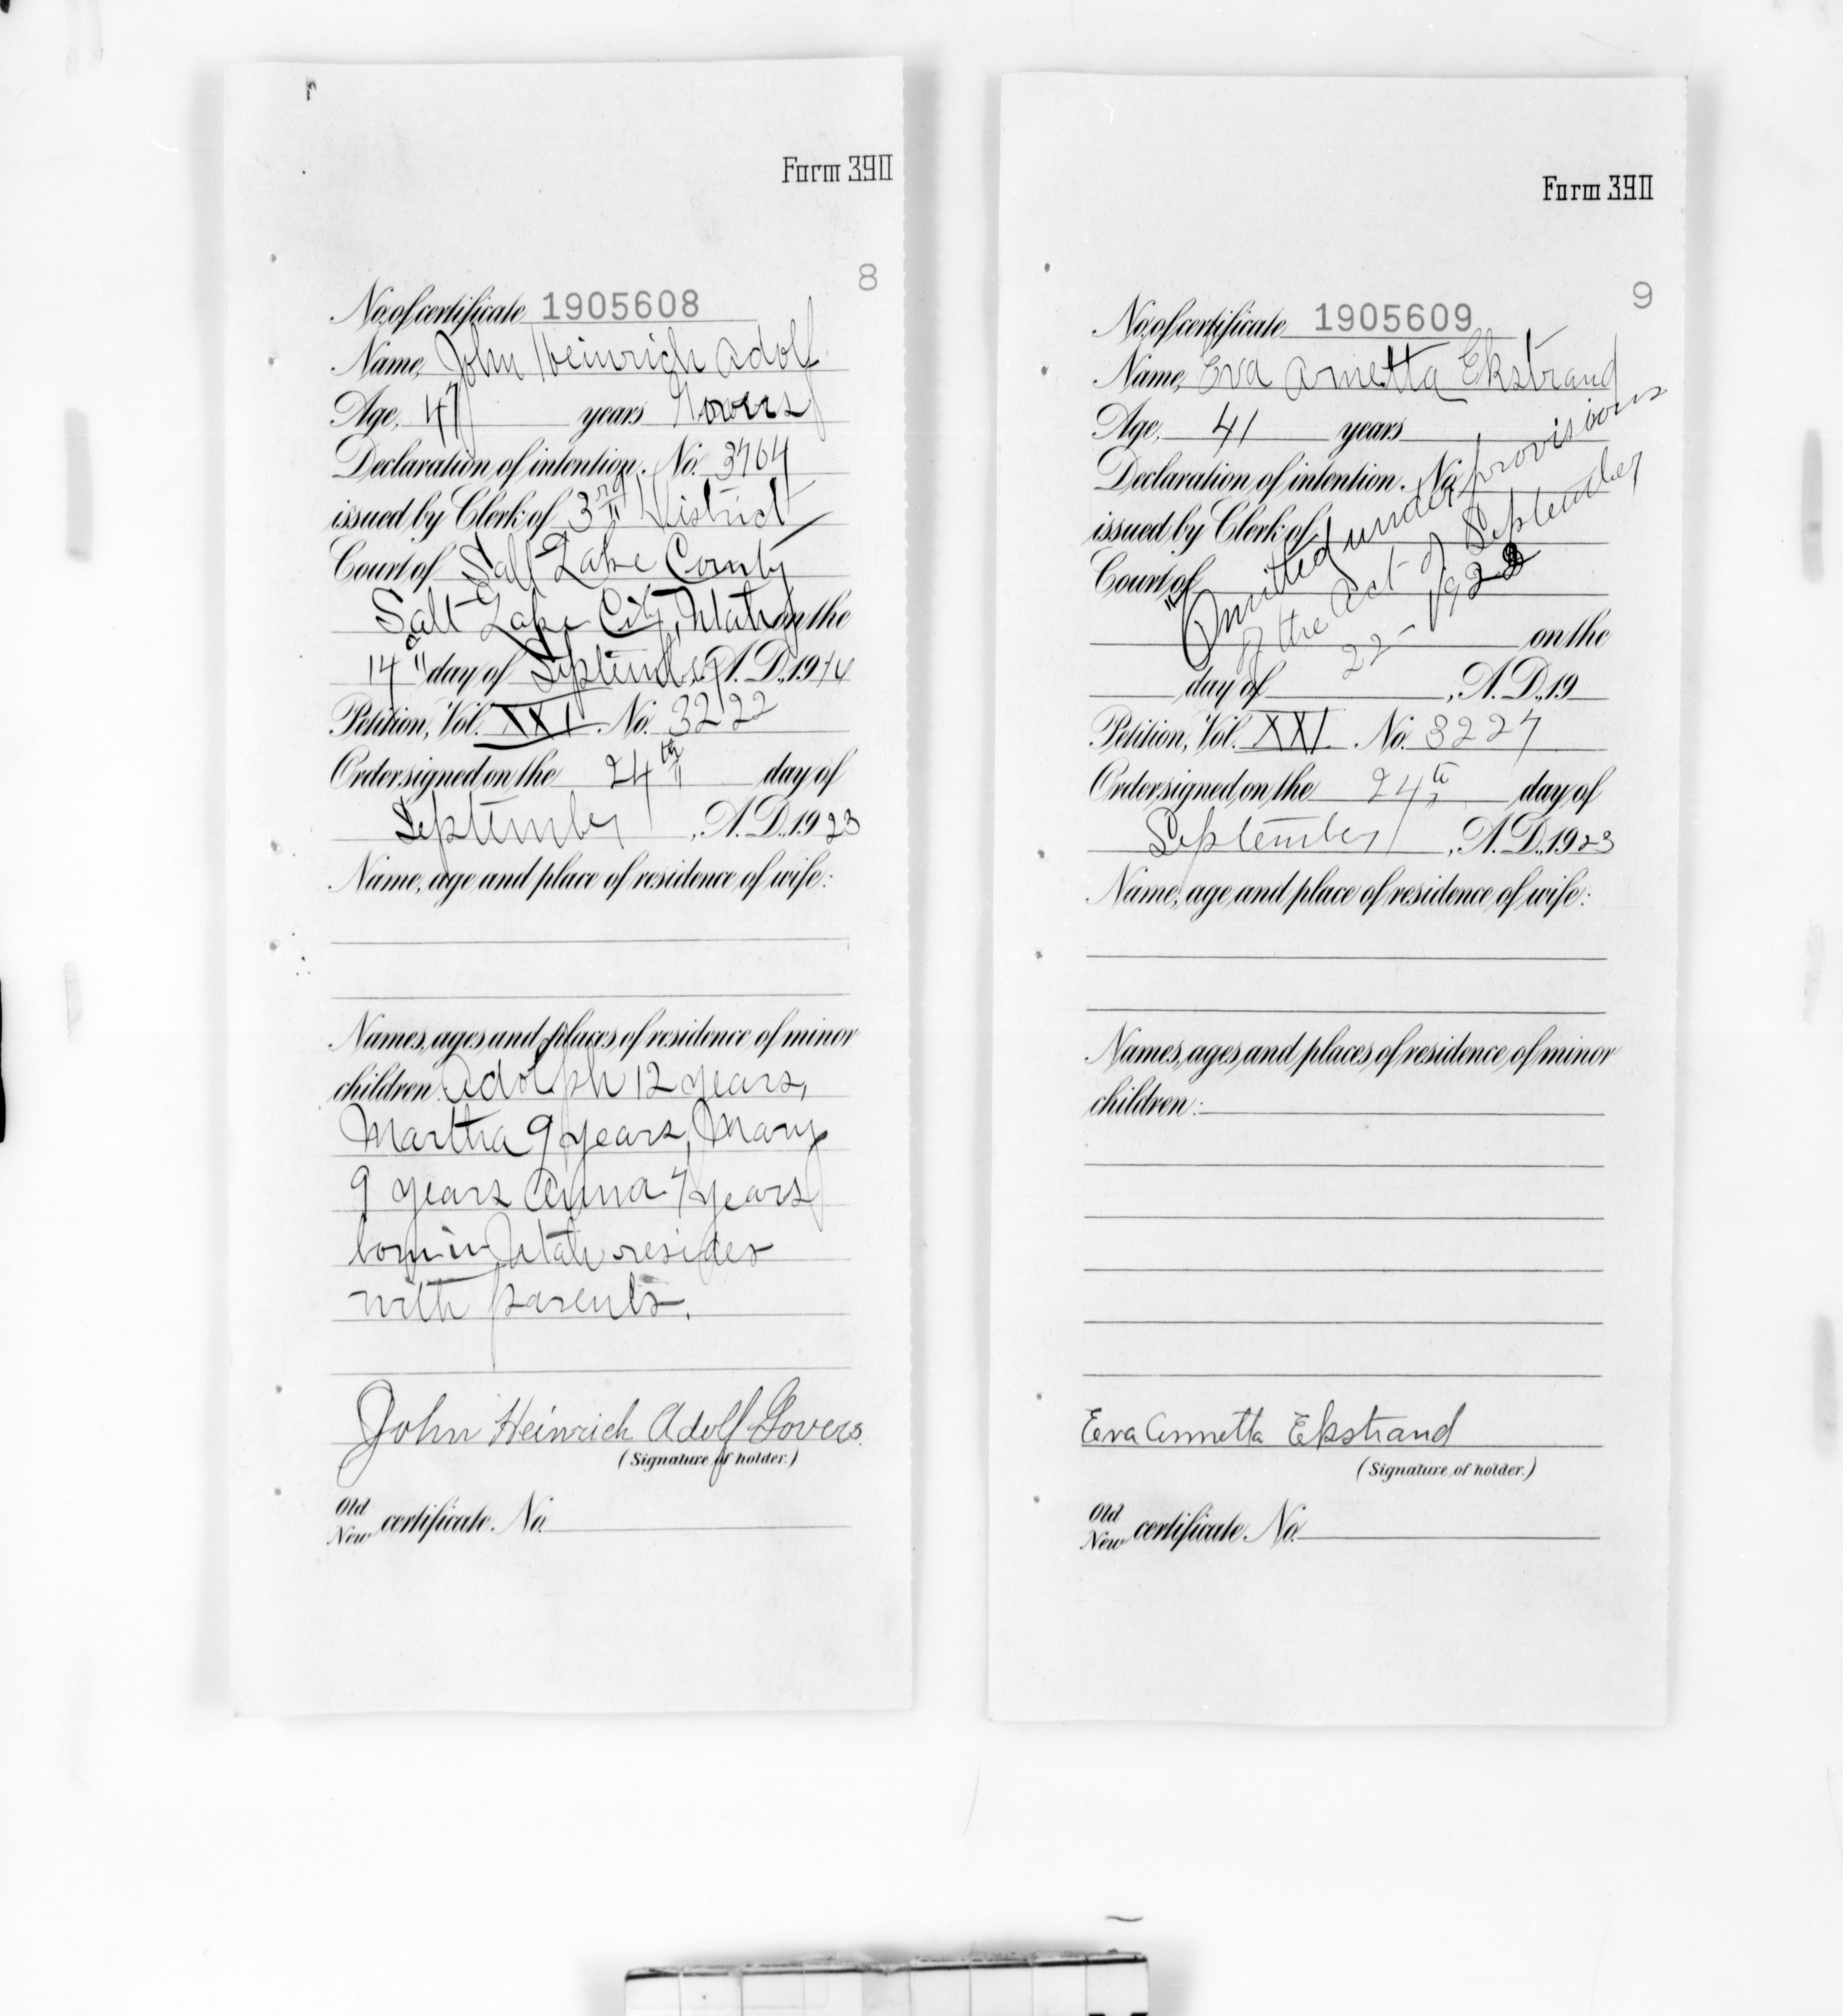 Form 390
8
No. of certificate 1905608
Name, John Heinrich Adolf
Age, 47 years Govers
Declaration of intention. No. 3764
issued by Clerk of 3rd District
Court of Salt Lake County
Salt Lake City, Utah on the
14" day of September, A.D., 1914
Petition, Vol. XXI No. 3222
Order signed on the 24th day of
September, A.D., 1923
Name, age and place of residence of wife:
Names, ages and places of residence of minor
children: Adolph 12 years,
Martha 9 years, Mary
9 years Anna 7 years
born in Utah resides
with parents.
John Heinrich Adolf Govers
(Signature of holder.)
Old
New certificate. No.
Form 390
9
No. of certificate 1905609
Name, Eva Annetta Ekstrand
Age, 41 years
Declaration of intention. No.
issued by Clerk of
Court of
"Omitted under provisions
of the Act of September
22- 1922
on the
day of , A.D., 19
Petition, Vol. XXI. No. 3227
Order signed on the 24th day of
September, A.D., 1923
Name, age and place of residence of wife:
Names, ages and places of residence of minor
children:
Eva Annetta Ekstrand
(Signature of holder.)
Old
New certificate. No.